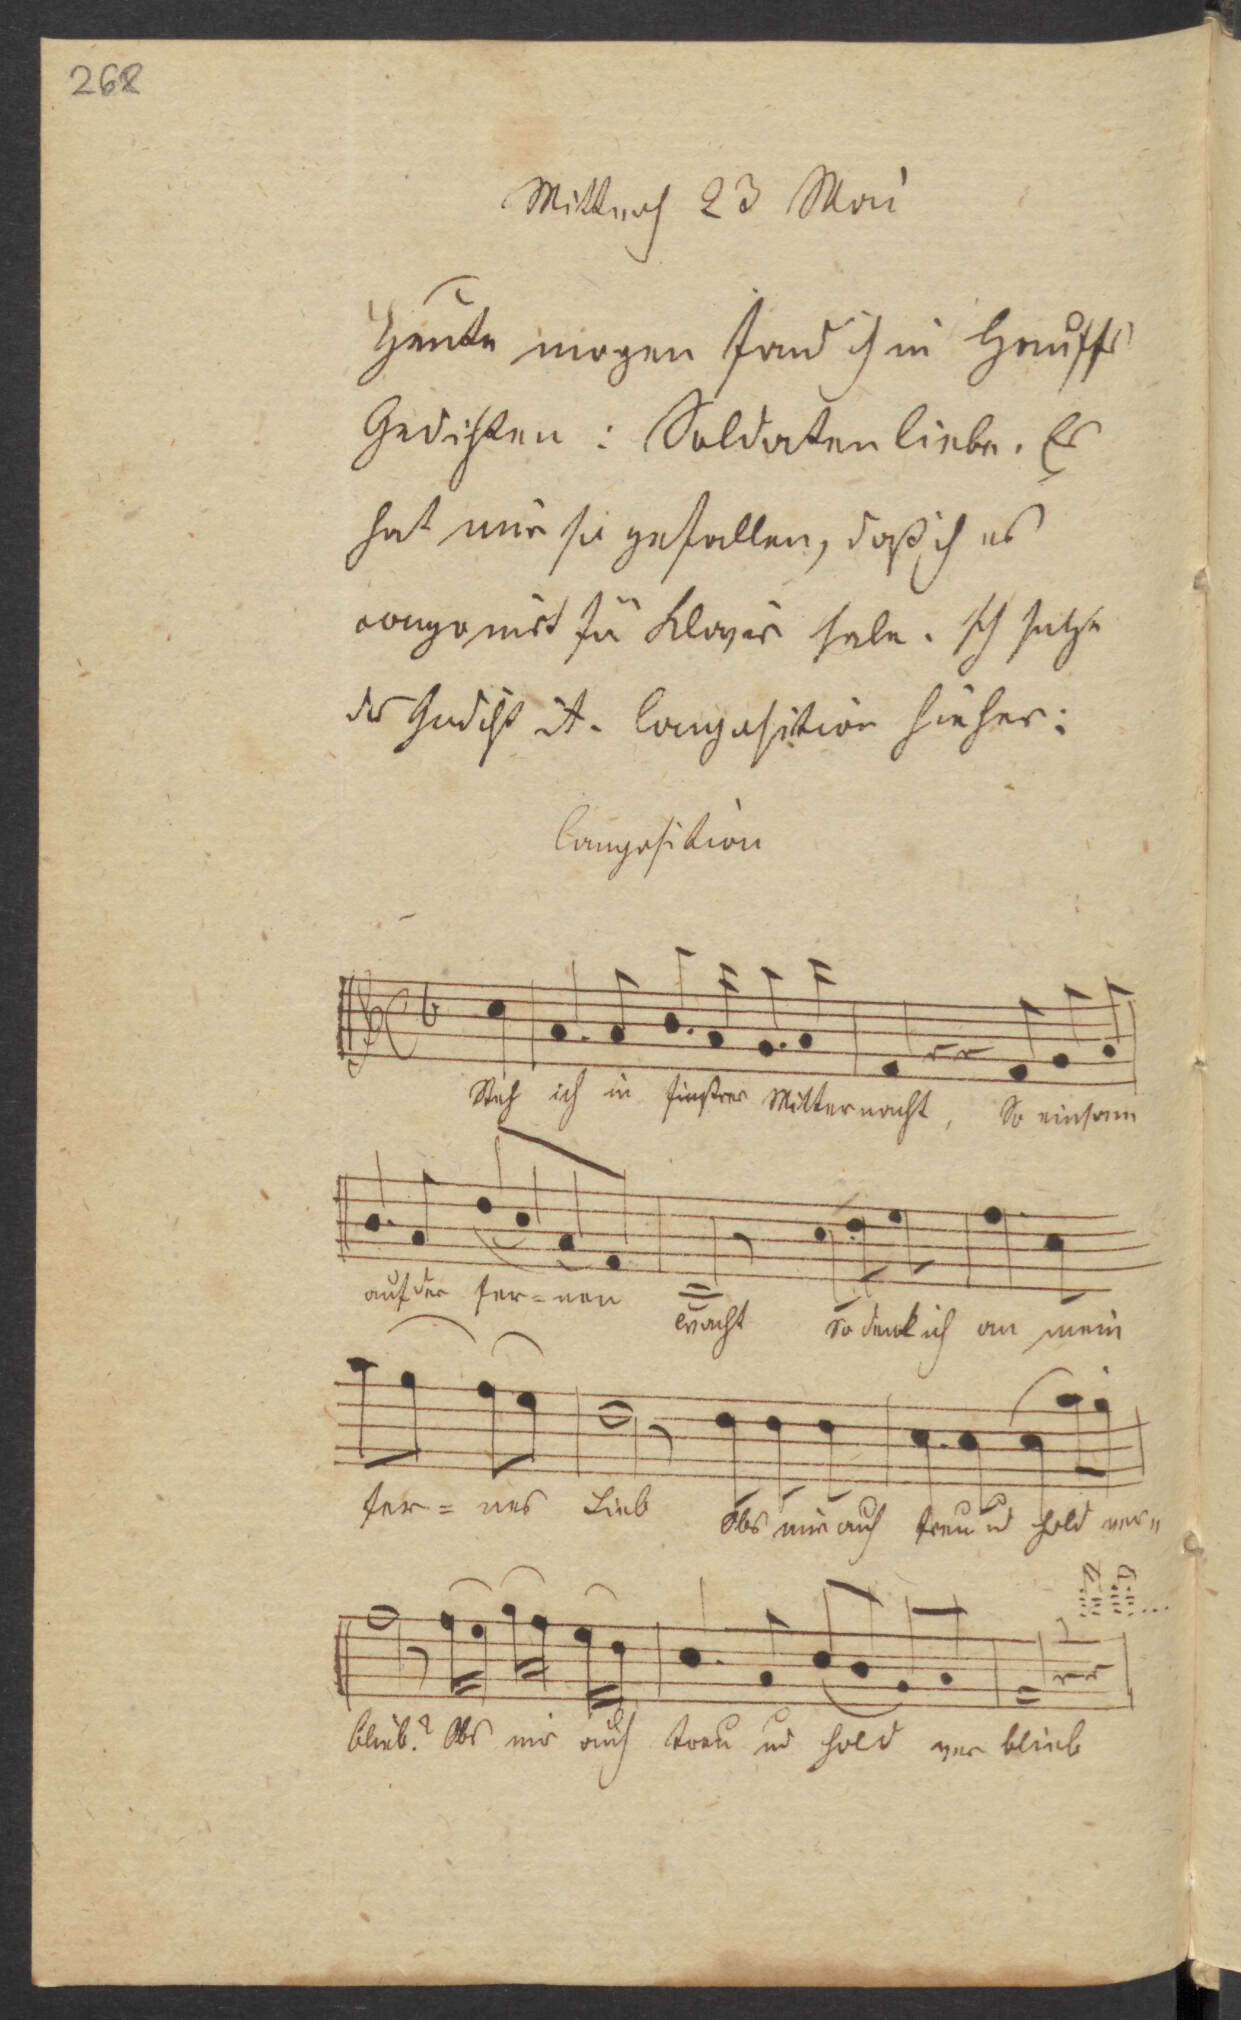 268
Mittwoch 23 Mai
Heute morgen fand ich in Hauffs
Gedichten: Soldatenliebe. Es
hat mir so gefallen, daß ich es
componirt für Klavir habe. Ich setze
das Gedicht u. Composition hieher:
Composition
Steh ich in finstrer Mitternacht, So einsam
auf der fer=nen Wacht so denk ich an mein
fer=nes Lieb Obs mir auch treu und hold ver=
blieb? Obs mir auch treu und hold ver blieb